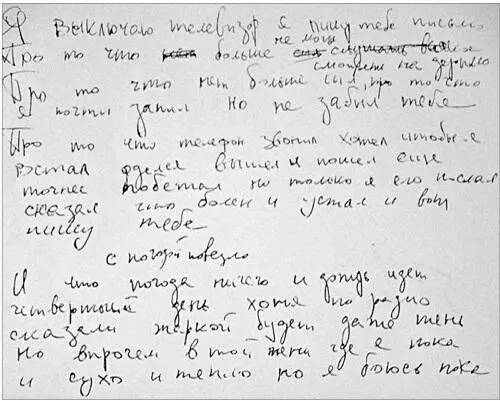 Я выключаю телевизор я пишу тебе письмо
не могу
Про то что больше
смотреть на дерьмо
Про то что нет больше сил про то что
я почти запил но не забыл тебе
Про то что телефон звонил хотел чтобы я
встал оделся вышел и пошел еще
точнее побежал но только я его послал
сказал что болен и устал и вот
пишу тебе
с погодой повезло
И что погода ничего и дождь идет
четвертый день хотя по радио
сказали жаркой будет даже тень
но впрочем в той тени где я пока
и сухо и тепло но я боюсь пока